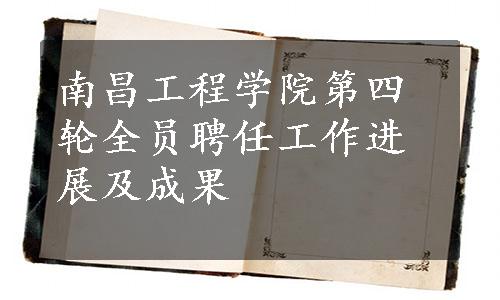 南昌工程学院第四
轮全员聘任工作进
展及成果